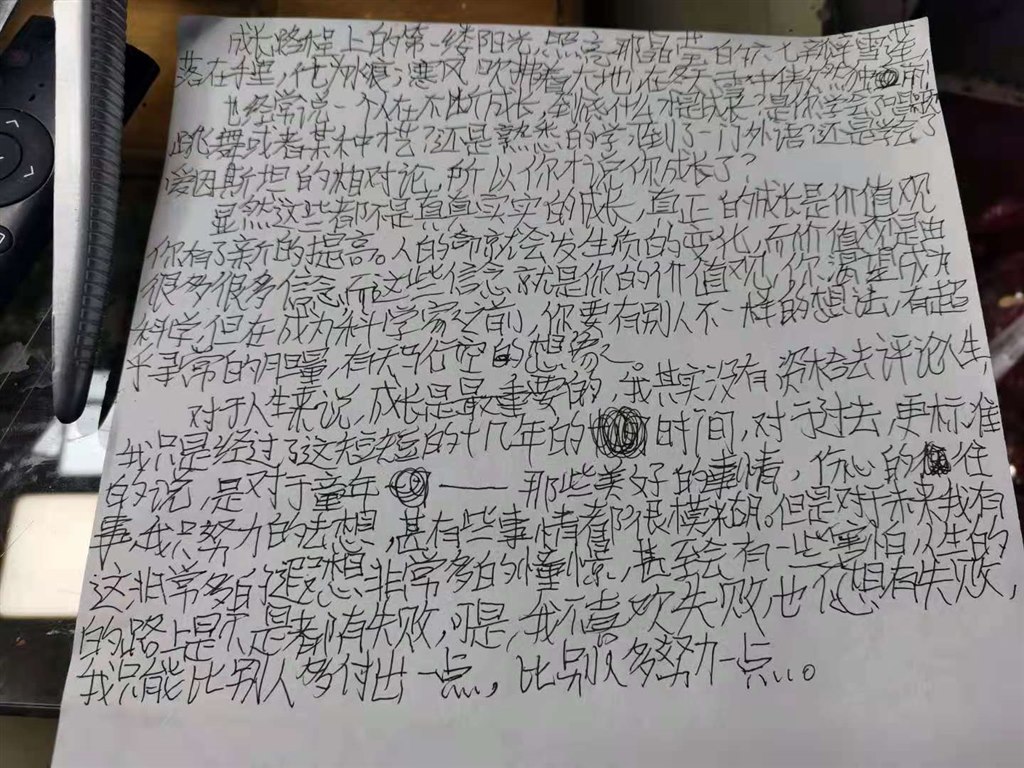 成长路程上的第一缕阳光照亮那晶莹的六七部雪莲
落在手里,化为水痕;寒风吹拂着大地,在冬
也经常说一个人在不断成长,到底什么才是成长?是你学会了唱歌
跳舞或者某种才艺?还是熟悉的学到了一门外语?还是学会了
爱因斯坦的相对论,所以你才说你成长了?
显然这些都不是真真实实的成长,真正的成长是价值观
你有了新的提高。人的就会发生质的变化,而价值观是由
很多很多信念,而这些信念就是你的价值观,你渴望成为
科学,但在成为科学家之前,你要有别人不一样的想法,有超
乎寻常的胆量,有天马行空的想象。
对于人生来说成长是最重要的。我其实没有资格去评论人生,
我只是经过了这短短的十几年的时间,对于过去更标准
的说,是对于童年——那些美好的事情,伤心的往
事,我只努力的去想,甚有些事情都很模糊。但是对于未来我有
这非常多的遐想,非常多的憧憬,甚至会有一些害怕,人生的
的路上是不是都有失败,可是,我不喜欢失败,也不想有失败,
我只能比别人多付出一点,比别人多努力一点...。